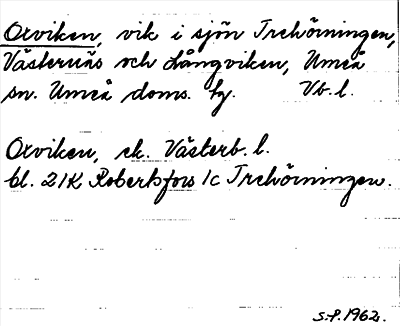 Oxviken, vik i sjön Trehörningen,
Västernäs och Långviken, Umeå
sn. Umeå doms. tg. Vb. l.
Oxviken, ek. Västerb. l.
bl. 21K Robertsfors 1c Trehörningen.
S.P. 1962.